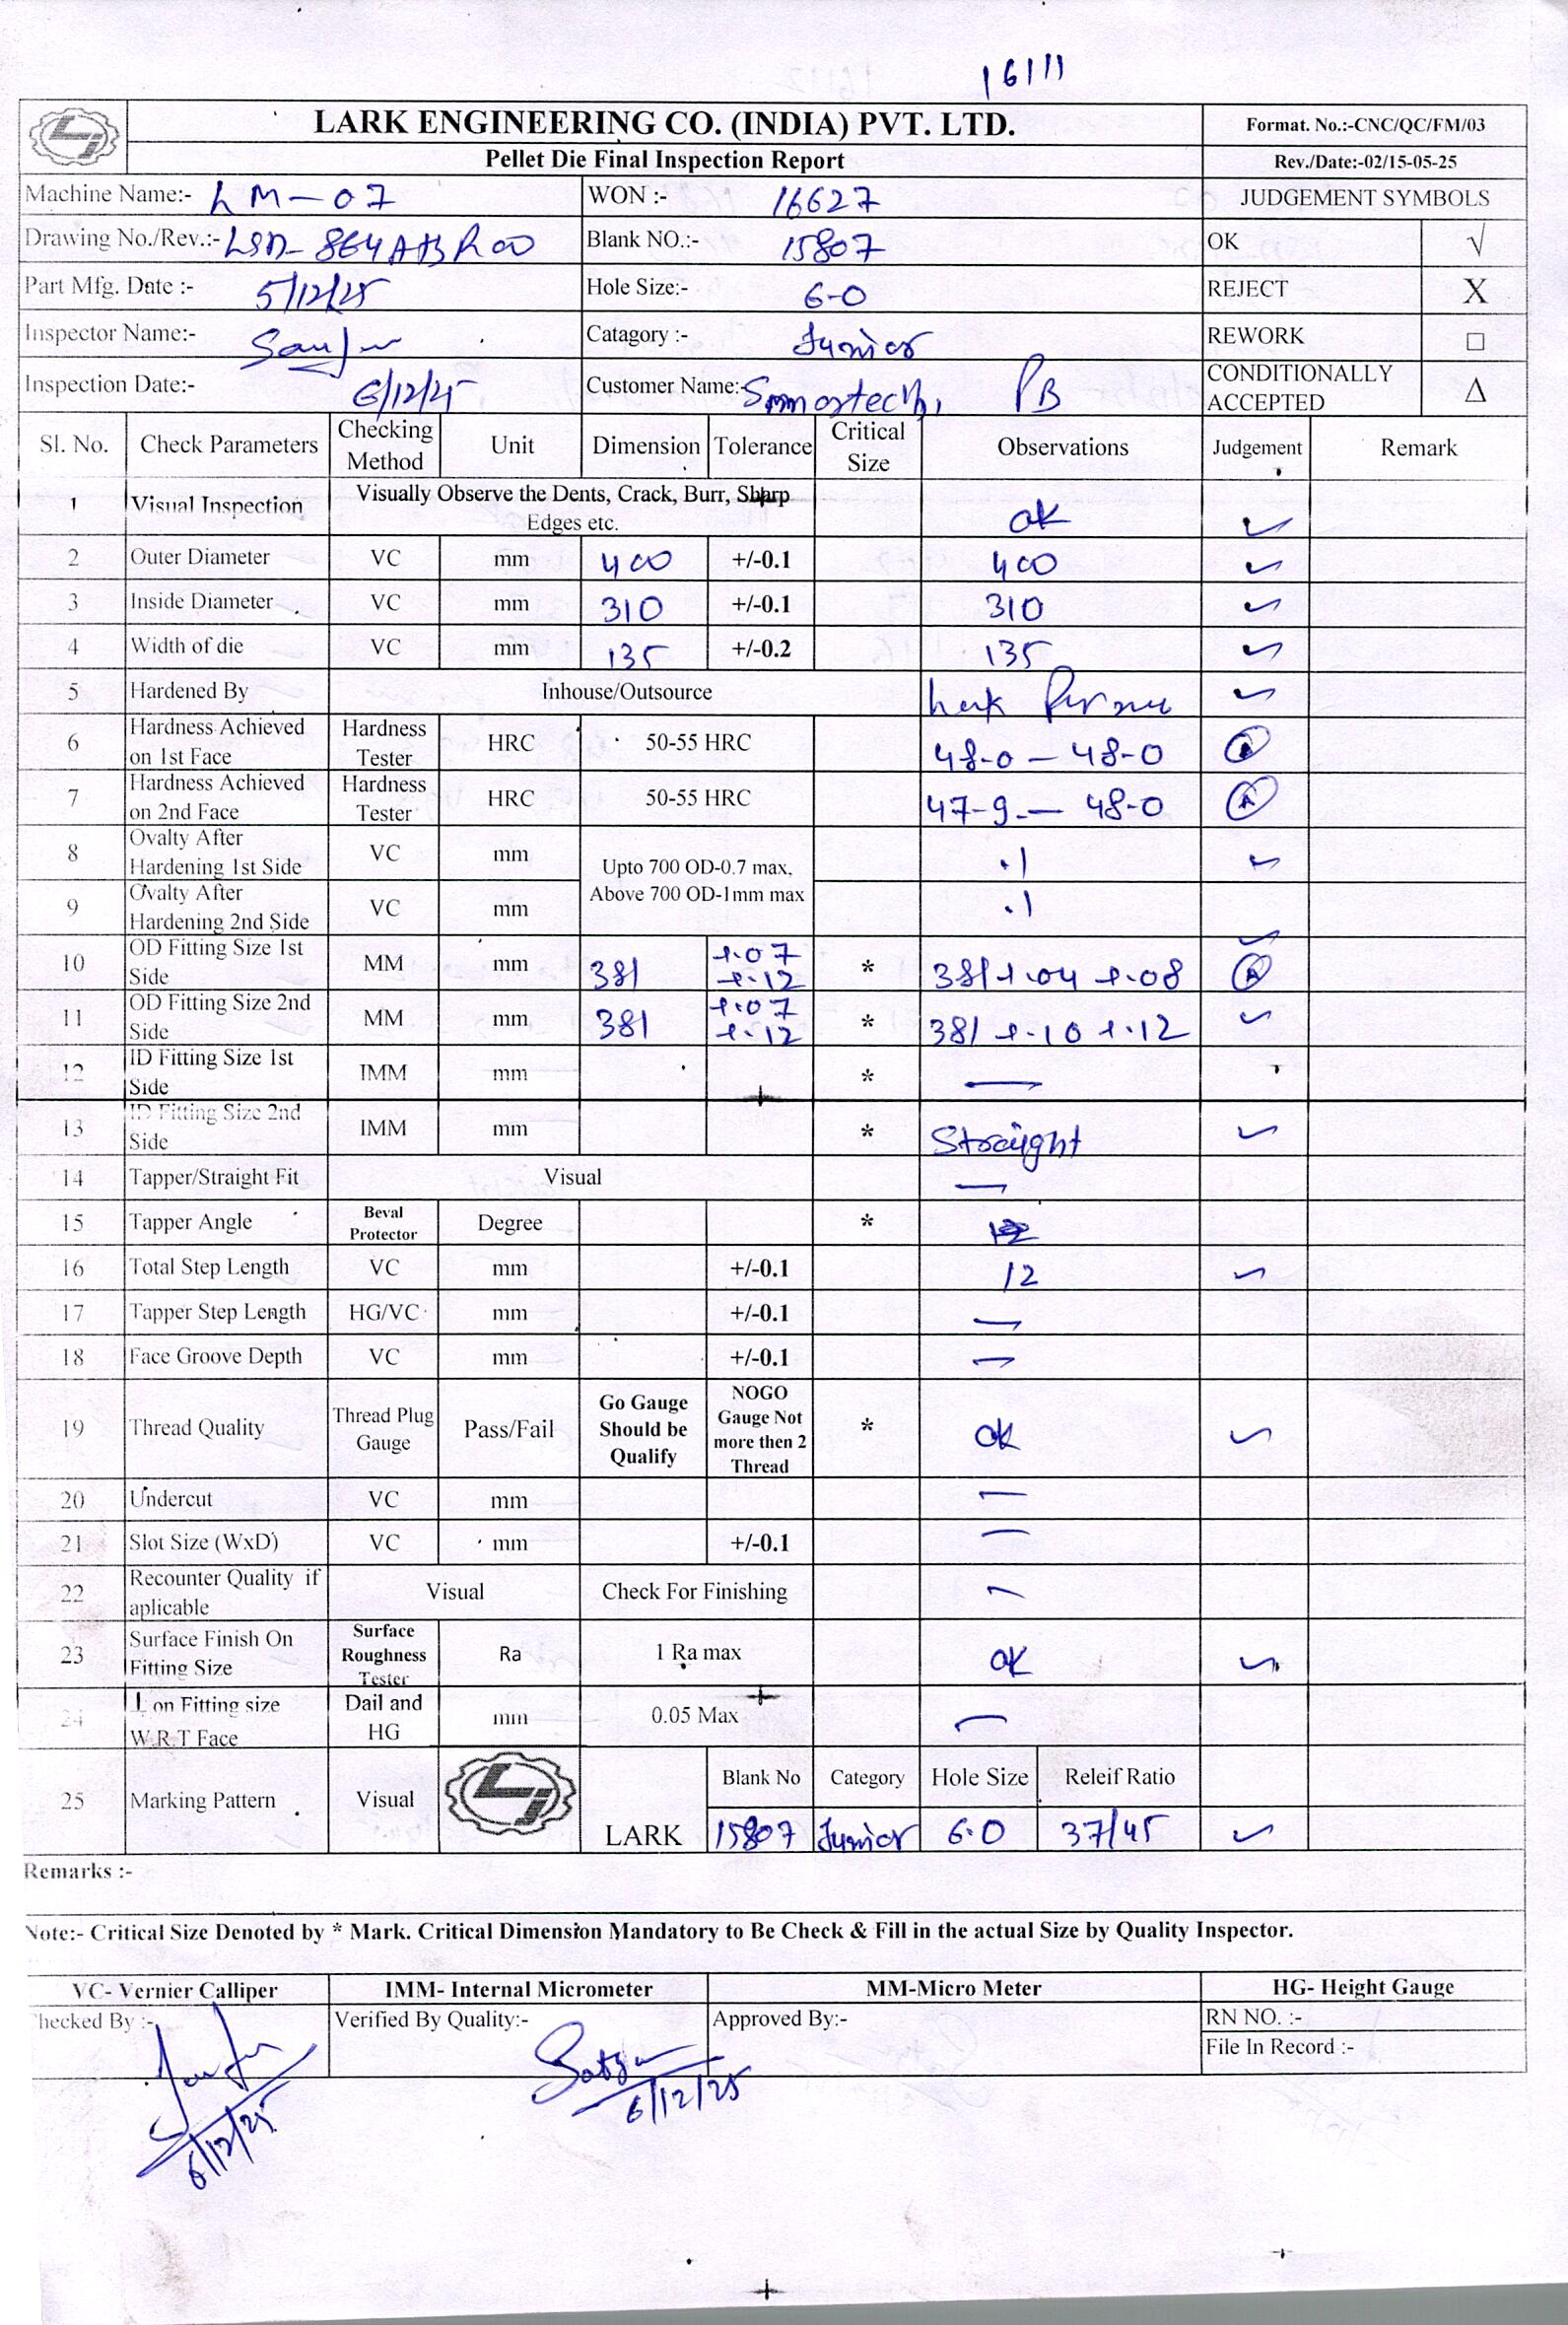 16111
LARK ENGINEERING CO. (INDIA) PVT. LTD. Format. No.:-CNC/QC/FM/03
Pellet Die Final Inspection Report Rev./Date:-02/15-05-25
Machine Name:- LM-07 WON :- 16627 JUDGEMENT SYMBOLS
Drawing No./Rev.:- LSD-864AB R00 Blank NO.:- 15807 OK √
Part Mfg. Date :- 5/12/25 Hole Size:- 6-0 REJECT X
Inspector Name:- Catagory :- Junior REWORK □
Inspection Date:- 6/12/25 Customer Name: PB CONDITIONALLY ACCEPTED Δ
Sl. No. Check Parameters Checking Method Unit Dimension Tolerance Critical Size Observations Judgement Remark
1 Visual Inspection Visually Observe the Dents, Crack, Burr, Sharp Edges etc. OK ✓
2 Outer Diameter VC mm 400 +/-0.1 400 ✓
3 Inside Diameter VC mm 310 +/-0.1 310 ✓
4 Width of die VC mm 135 +/-0.2 135 ✓
5 Hardened By Inhouse/Outsource Lark ✓
6 Hardness Achieved on 1st Face Hardness Tester HRC 50-55 HRC 48-0 — 48-0
7 Hardness Achieved on 2nd Face Hardness Tester HRC 50-55 HRC 47-9 — 48-0 A
8 Ovalty After Hardening 1st Side VC mm Upto 700 OD-0.7 max, Above 700 OD-1mm max .1 ✓
9 Ovalty After Hardening 2nd Side VC mm .1 ✓
10 OD Fitting Size 1st Side MM mm 381 +.07 +.12 * 381 +.04 +.08 A
11 OD Fitting Size 2nd Side MM mm 381 +.07 +.12 * 381 +.10 +.12 ✓
12 ID Fitting Size 1st Side IMM mm * —
13 ID Fitting Size 2nd Side IMM mm * Straight ✓
14 Tapper/Straight Fit Visual —
15 Tapper Angle Beval Protector Degree *
16 Total Step Length VC mm +/-0.1 12 ✓
17 Tapper Step Length HG/VC mm +/-0.1 —
18 Face Groove Depth VC mm +/-0.1 —
19 Thread Quality Thread Plug Gauge Pass/Fail Go Gauge Should be Qualify NOGO Gauge Not more then 2 Thread * OK ✓
20 Undercut VC mm —
21 Slot Size (WxD) VC mm +/-0.1 —
22 Recounter Quality if aplicable Visual Check For Finishing —
23 Surface Finish On Fitting Size Surface Roughness Tester Ra 1 Ra max OK ✓
24 ⊥ on Fitting size W.R.T Face Dail and HG mm 0.05 Max —
25 Marking Pattern Visual LARK Blank No Category Hole Size Releif Ratio
15807 Junior 6.0 37/45 ✓
Remarks :-
Note:- Critical Size Denoted by * Mark. Critical Dimension Mandatory to Be Check & Fill in the actual Size by Quality Inspector.
VC- Vernier Calliper IMM- Internal Micrometer MM-Micro Meter HG- Height Gauge
Checked By :- Verified By Quality:- Approved By:- RN NO. :-
File In Record :-
6/12/25
6/12/25